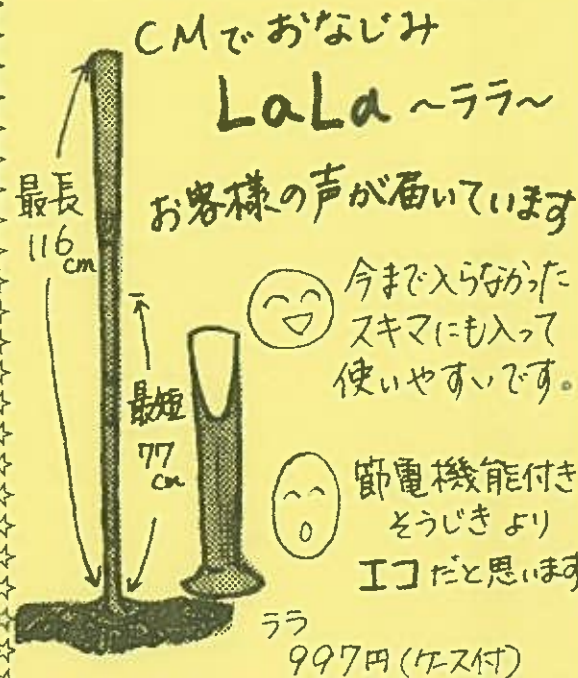 CMでおなじみ
LaLa ~ララ~
お客様の声が届いています
最長
116
cm
今まで入らなかった
スキマにも入って
使いやすいです。
最短
77
cm
節電機能付き
そうじきより
エコだと思います
ララ
997円(ケース付)